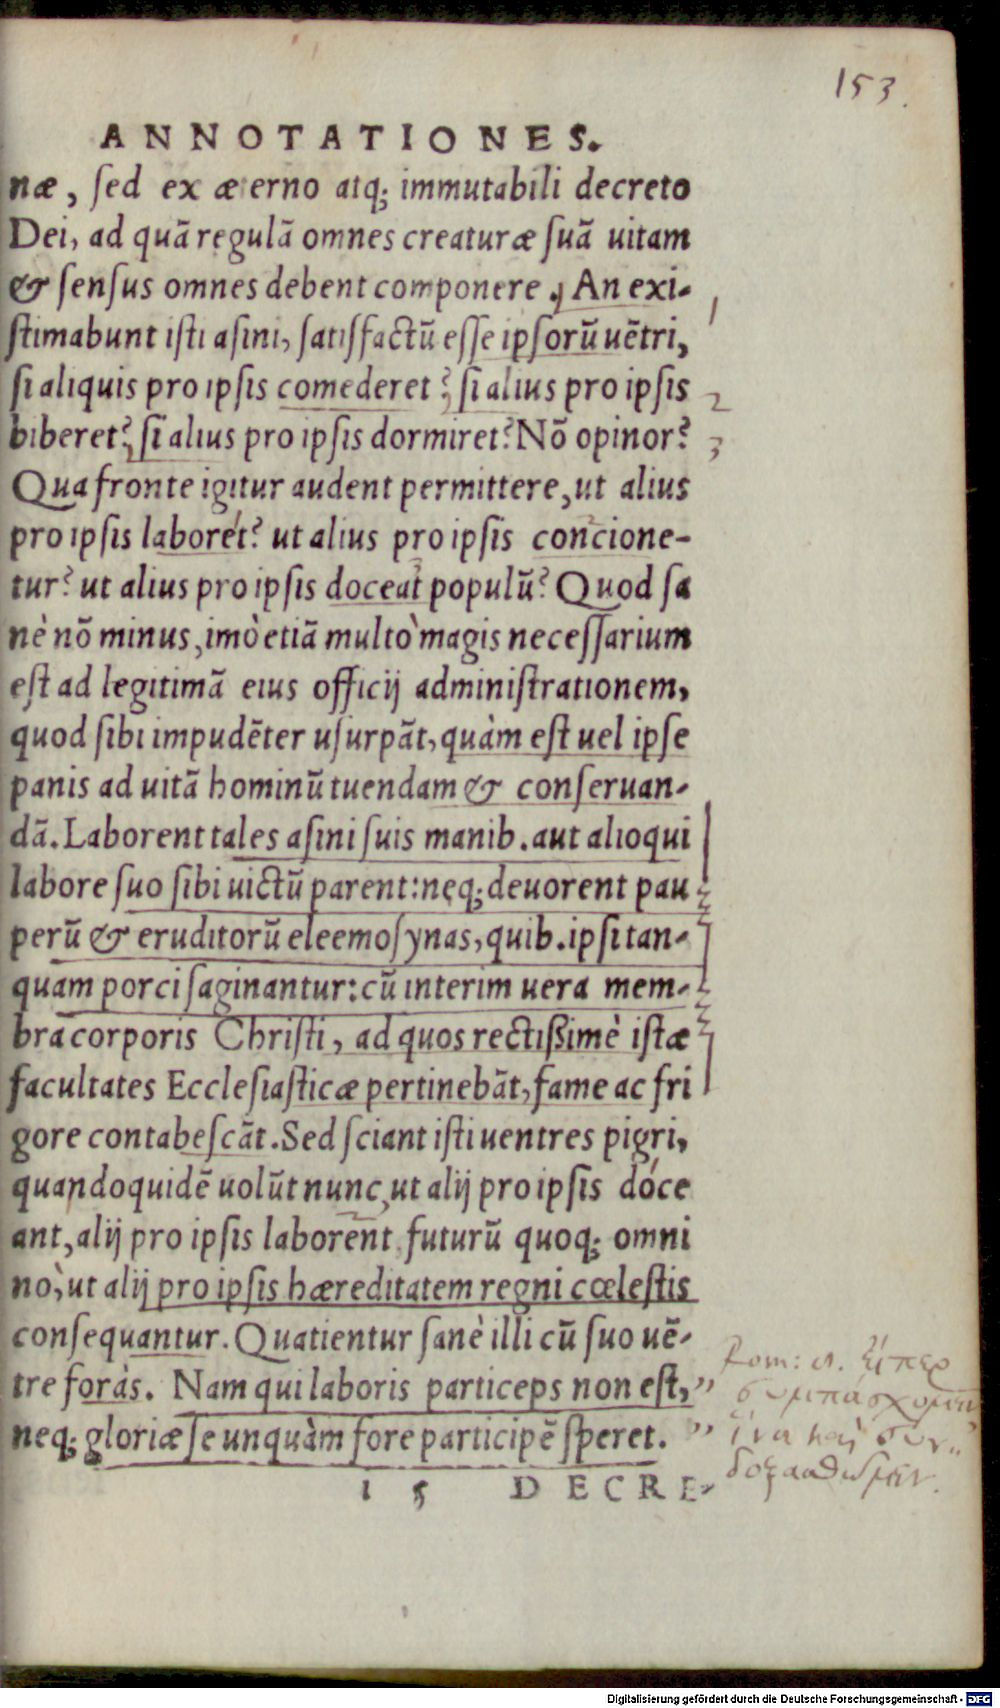 153.
ANNOTATIONES.
næ, ſed ex æ erno atq; immutabili decreto
Dei, ad quā regulā omnes creaturæ ſuā uitam
& ſenſus omnes debent componere. An exi-
1
ſtimabunt iſti aſini, ſatiſfactū eſſe ipſorū uētri,
ſi aliquis pro ipſis comederet? ſi alius pro ipſis
2
biberet? ſi alius pro ipſis dormiret? Nō opinor?
3
Qua fronte igitur audent permittere, ut alius
pro ipſis laboret? ut alius pro ipſis concione-
tur? ut alius pro ipſis doceat populū? Quod ſa
nè nō minus, imò etiā multò magis neceſſarium
eſt ad legitimā eius officij adminiſtrationem,
quod ſibi impudēter uſurpāt, quàm eſt uel ipſe
panis ad uitā hominū tuendam & conſeruan-
dā. Laborent tales aſini ſuis manib. aut alioqui
labore ſuo ſibi uictū parent: neq; deuorent pau
perū & eruditorū eleemoſynas, quib. ipſi tan-
quam porci ſaginantur: cū interim uera mem-
bra corporis Chriſti, ad quos rectißimè iſtæ
facultates Eccleſiaſticæ pertinebāt, fame ac fri
gore contabeſcāt. Sed ſciant iſti uentres pigri,
quandoquidē uolūt nunc, ut alij pro ipſis doce
ant, alij pro ipſis laborent futurū quoq; omni
nò, ut alij pro ipſis hæreditatem regni cœleſtis
conſequantur. Quatientur ſanè illi cū ſuo uē-
tre foràs. Nam qui laboris particeps non eſt,
neq; gloriæ ſe unquàm fore participē ſperet.
Rom: εἴπερ
συμπάσχομεν
ἵνα καὶ συν-
δοξασθῶμεν.
l 5 DECRE-
Digitalisierung gefördert durch die Deutsche Forschungsgemeinschaft - DFG